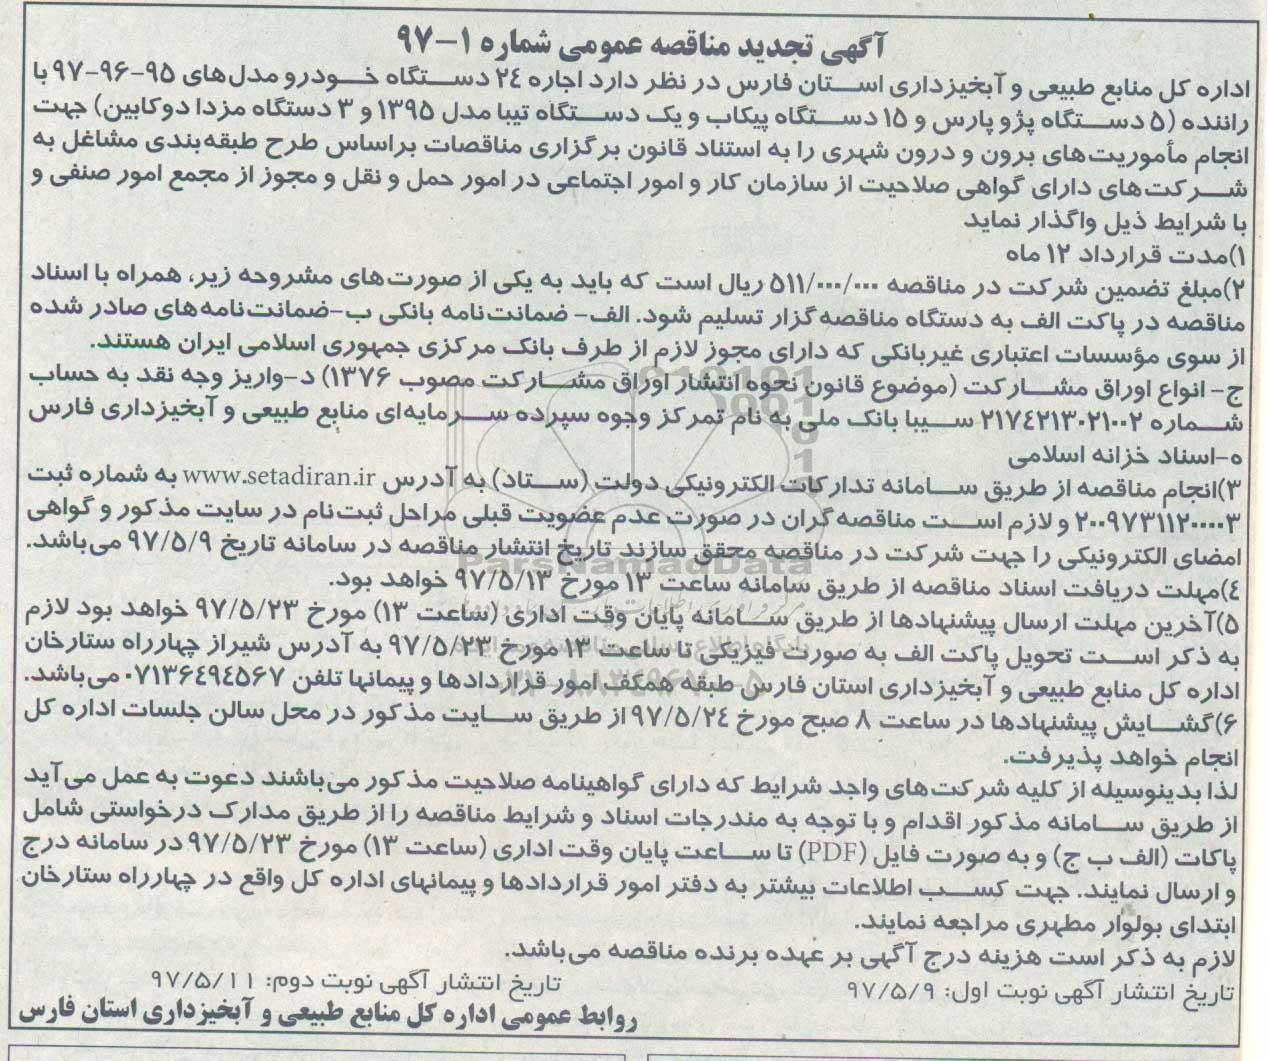 آگهی تجدید مناقصه عمومی شماره ۱-۹۷
اداره کل منابع طبیعی و آبخیزداری استان فارس در نظر دارد اجاره ۲۴ دستگاه خودرو مدل‌های ۹۵-۹۶-۹۷ با
راننده (۵ دستگاه پژو پارس و ۱۵ دستگاه پیکاب و یک دستگاه تیبا مدل ۱۳۹۵ و ۳ دستگاه مزدا دوکابین) جهت
انجام مأموریت‌های برون و درون شهری را به استناد قانون برگزاری مناقصات براساس طرح طبقه‌بندی مشاغل به
شرکت‌های دارای گواهی صلاحیت از سازمان کار و امور اجتماعی در امور حمل و نقل و مجوز از مجمع امور صنفی و
با شرایط ذیل واگذار نماید
۱)مدت قرارداد ۱۲ ماه
۲)مبلغ تضمین شرکت در مناقصه ۵۱۱/۰۰۰/۰۰۰ ریال است که باید به یکی از صورت‌های مشروحه زیر، همراه با اسناد
مناقصه در پاکت الف به دستگاه مناقصه‌گزار تسلیم شود. الف- ضمانت‌نامه بانکی ب-ضمانت‌نامه‌های صادر شده
از سوی مؤسسات اعتباری غیربانکی که دارای مجوز لازم از طرف بانک مرکزی جمهوری اسلامی ایران هستند.
ج- انواع اوراق مشارکت (موضوع قانون نحوه انتشار اوراق مشارکت مصوب ۱۳۷۶) د-واریز وجه نقد به حساب
شماره ۲۱۷۴۲۱۳۰۲۱۰۰۲ سیبا بانک ملی به نام تمرکز وجوه سپرده سرمایه‌ای منابع طبیعی و آبخیزداری فارس
ه-اسناد خزانه اسلامی
۳)انجام مناقصه از طریق سامانه تدارکات الکترونیکی دولت (ستاد) به آدرس www.setadiran.ir به شماره ثبت
۲۰۰۹۷۳۱۱۲۰۰۰۰۳ و لازم است مناقصه‌گران در صورت عدم عضویت قبلی مراحل ثبت‌نام در سایت مذکور و گواهی
امضای الکترونیکی را جهت شرکت در مناقصه محقق سازند تاریخ انتشار مناقصه در سامانه تاریخ ۹۷/۵/۹ می‌باشد.
۴)مهلت دریافت اسناد مناقصه از طریق سامانه ساعت ۱۳ مورخ ۹۷/۵/۱۳ خواهد بود.
۵)آخرین مهلت ارسال پیشنهادها از طریق سامانه پایان وقت اداری (ساعت ۱۳) مورخ ۹۷/۵/۲۳ خواهد بود لازم
به ذکر است تحویل پاکت الف به صورت فیزیکی تا ساعت ۱۳ مورخ ۹۷/۵/۲۳ به آدرس شیراز چهارراه ستارخان
اداره کل منابع طبیعی و آبخیزداری استان فارس طبقه همکف امور قراردادها و پیمانها تلفن ۰۷۱۳۶۴۹۴۵۶۷ می‌باشد.
۶)گشایش پیشنهادها در ساعت ۸ صبح مورخ ۹۷/۵/۲۴ از طریق سایت مذکور در محل سالن جلسات اداره کل
انجام خواهد پذیرفت.
لذا بدینوسیله از کلیه شرکت‌های واجد شرایط که دارای گواهینامه صلاحیت مذکور می‌باشند دعوت به عمل می‌آید
از طریق سامانه مذکور اقدام و با توجه به مندرجات اسناد و شرایط مناقصه را از طریق مدارک درخواستی شامل
پاکات (الف ب ج) و به صورت فایل (PDF) تا ساعت پایان وقت اداری (ساعت ۱۳) مورخ ۹۷/۵/۲۳ در سامانه درج
و ارسال نمایند. جهت کسب اطلاعات بیشتر به دفتر امور قراردادها و پیمانهای اداره کل واقع در چهارراه ستارخان
ابتدای بولوار مطهری مراجعه نمایند.
لازم به ذکر است هزینه درج آگهی بر عهده برنده مناقصه می‌باشد.
تاریخ انتشار آگهی نوبت اول: ۹۷/۵/۹ تاریخ انتشار آگهی نوبت دوم: ۹۷/۵/۱۱
روابط عمومی اداره کل منابع طبیعی و آبخیزداری استان فارس
ParsNamadData